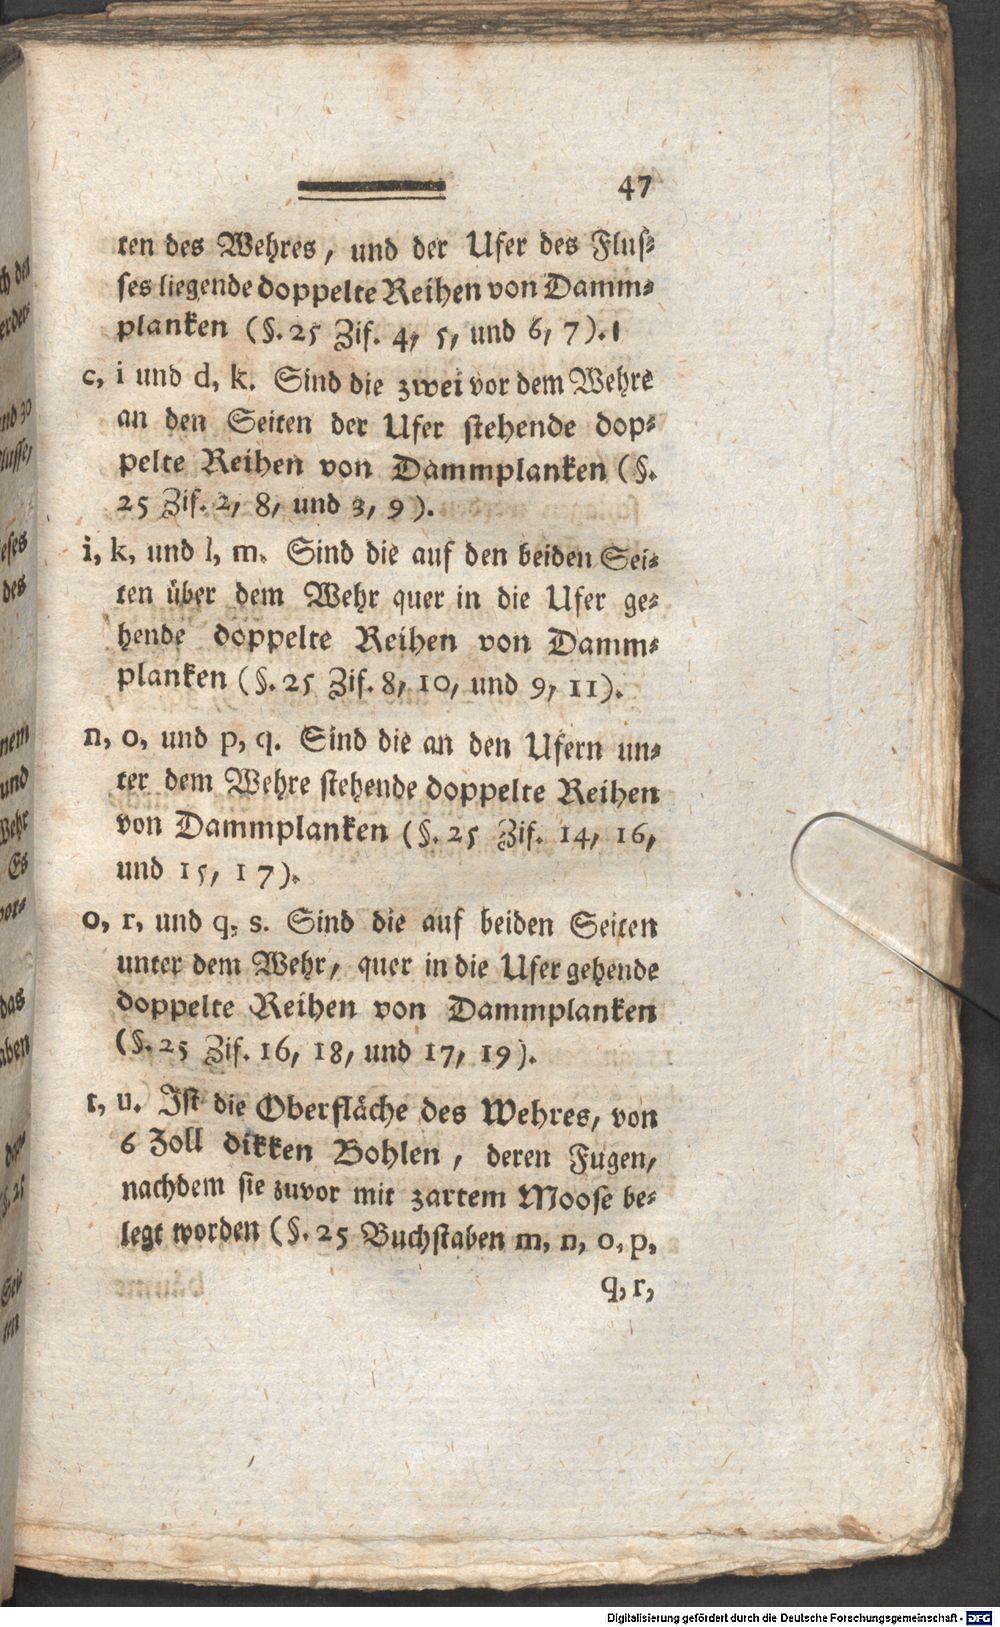 47
ten des Wehres, und der Ufer des Flus-
ses liegende doppelte Reihen von Damm-
planken (§. 25 Zif. 4, 5, und 6, 7).
c, i und d, k. Sind die zwei vor dem Wehre
an den Seiten der Ufer stehende dop-
pelte Reihen von Dammplanken (§.
25 Zif. 2, 8, und 3, 9).
i, k, und l, m. Sind die auf den beiden Sei-
ten über dem Wehr quer in die Ufer ge-
hende doppelte Reihen von Damm-
planken (§. 25 Zif. 8, 10, und 9, 11).
n, o, und p, q. Sind die an den Ufern un-
ter dem Wehre stehende doppelte Reihen
von Dammplanken (§. 25 Zif. 14, 16,
und 15, 17).
o, r, und q, s. Sind die auf beiden Seiten
unter dem Wehr, quer in die Ufer gehende
doppelte Reihen von Dammplanken
(§. 25 Zif. 16, 18, und 17, 19).
t, u. Ist die Oberfläche des Wehres, von
6 Zoll dikken Bohlen, deren Fugen,
nachdem sie zuvor mit zartem Moose be-
legt worden (§. 25 Buchstaben m, n, o, p,
q, r,
Digitalisierung gefördert durch die Deutsche Forschungsgemeinschaft - DFG